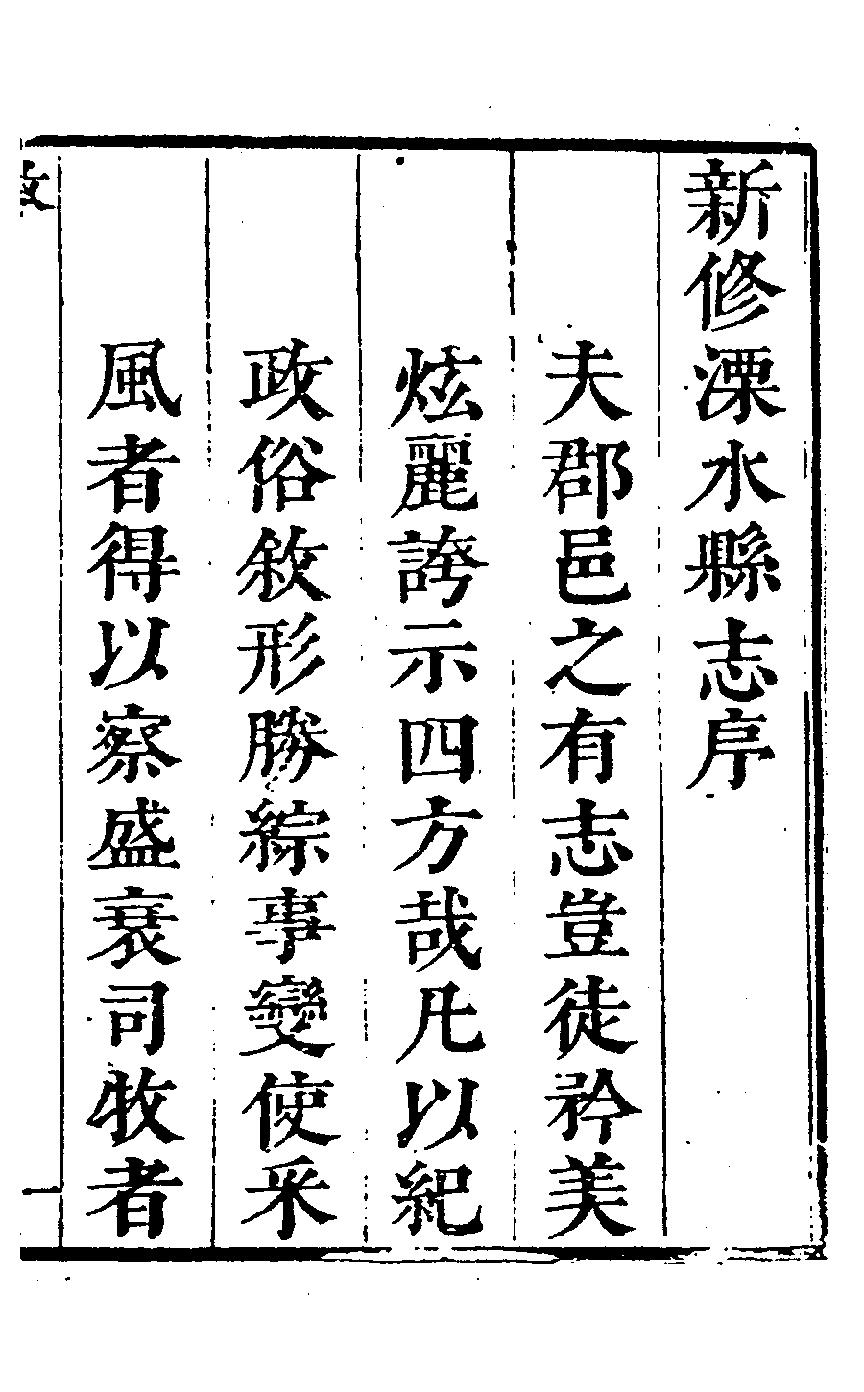 新修溧水縣志序
夫郡邑之有志豈徒矜美
炫麗誇示四方哉凡以紀
政俗敘形勝綜事變使采
風者得以察盛衰司牧者
一